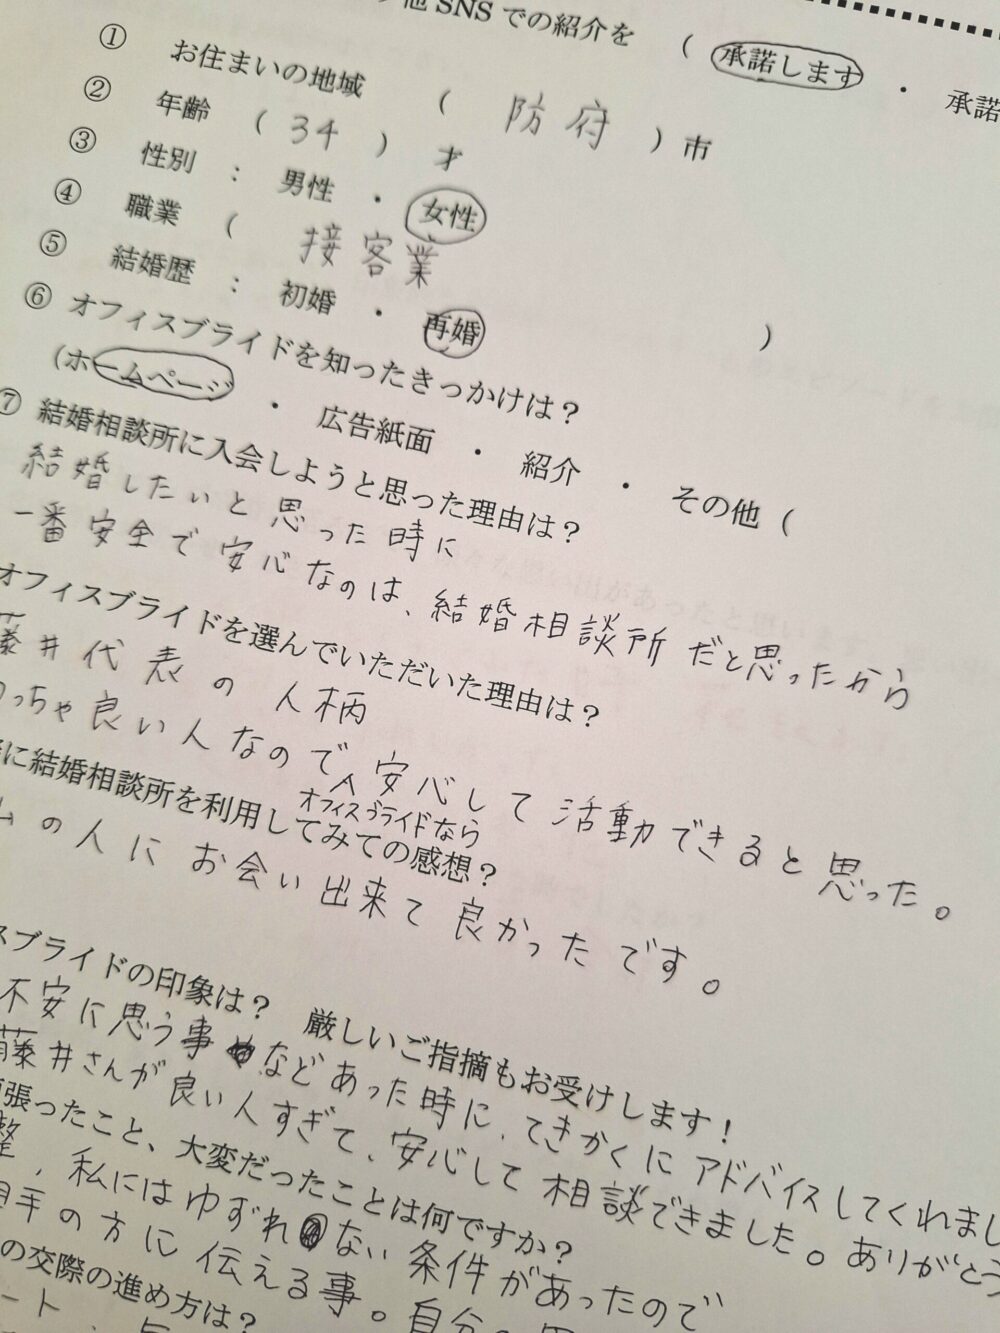 他SNSでの紹介を （ 承諾します ・ 承諾
① お住まいの地域 （ 防府 ）市
② 年齢 （ 34 ） 才
③ 性別 ： 男性 ・ 女性
④ 職業 （ 接客業 ）
⑤ 結婚歴 ： 初婚 ・ 再婚
⑥ オフィスブライドを知ったきっかけは？
（ホームページ ・ 広告紙面 ・ 紹介 ・ その他（
⑦ 結婚相談所に入会しようと思った理由は？
結婚したいと思った時に
一番安全で安心なのは、結婚相談所だと思ったから
オフィスブライドを選んでいただいた理由は？
藤井代表の人柄
めっちゃ良い人なので安心して活動できると思った。
オフィスブライドなら
に結婚相談所を利用してみての感想？
ムの人にお会い出来て良かったです。
スブライドの印象は？ 厳しいご指摘もお受けします！
不安に思う事などあった時に、てきかくにアドバイスしてくれまし
藤井さんが良い人すぎて、安心して相談できました。ありがとう
張ったこと、大変だったことは何ですか？
整、私にはゆずれない条件があったので
相手の方に伝える事。自分の
の交際の進め方は？
ート、